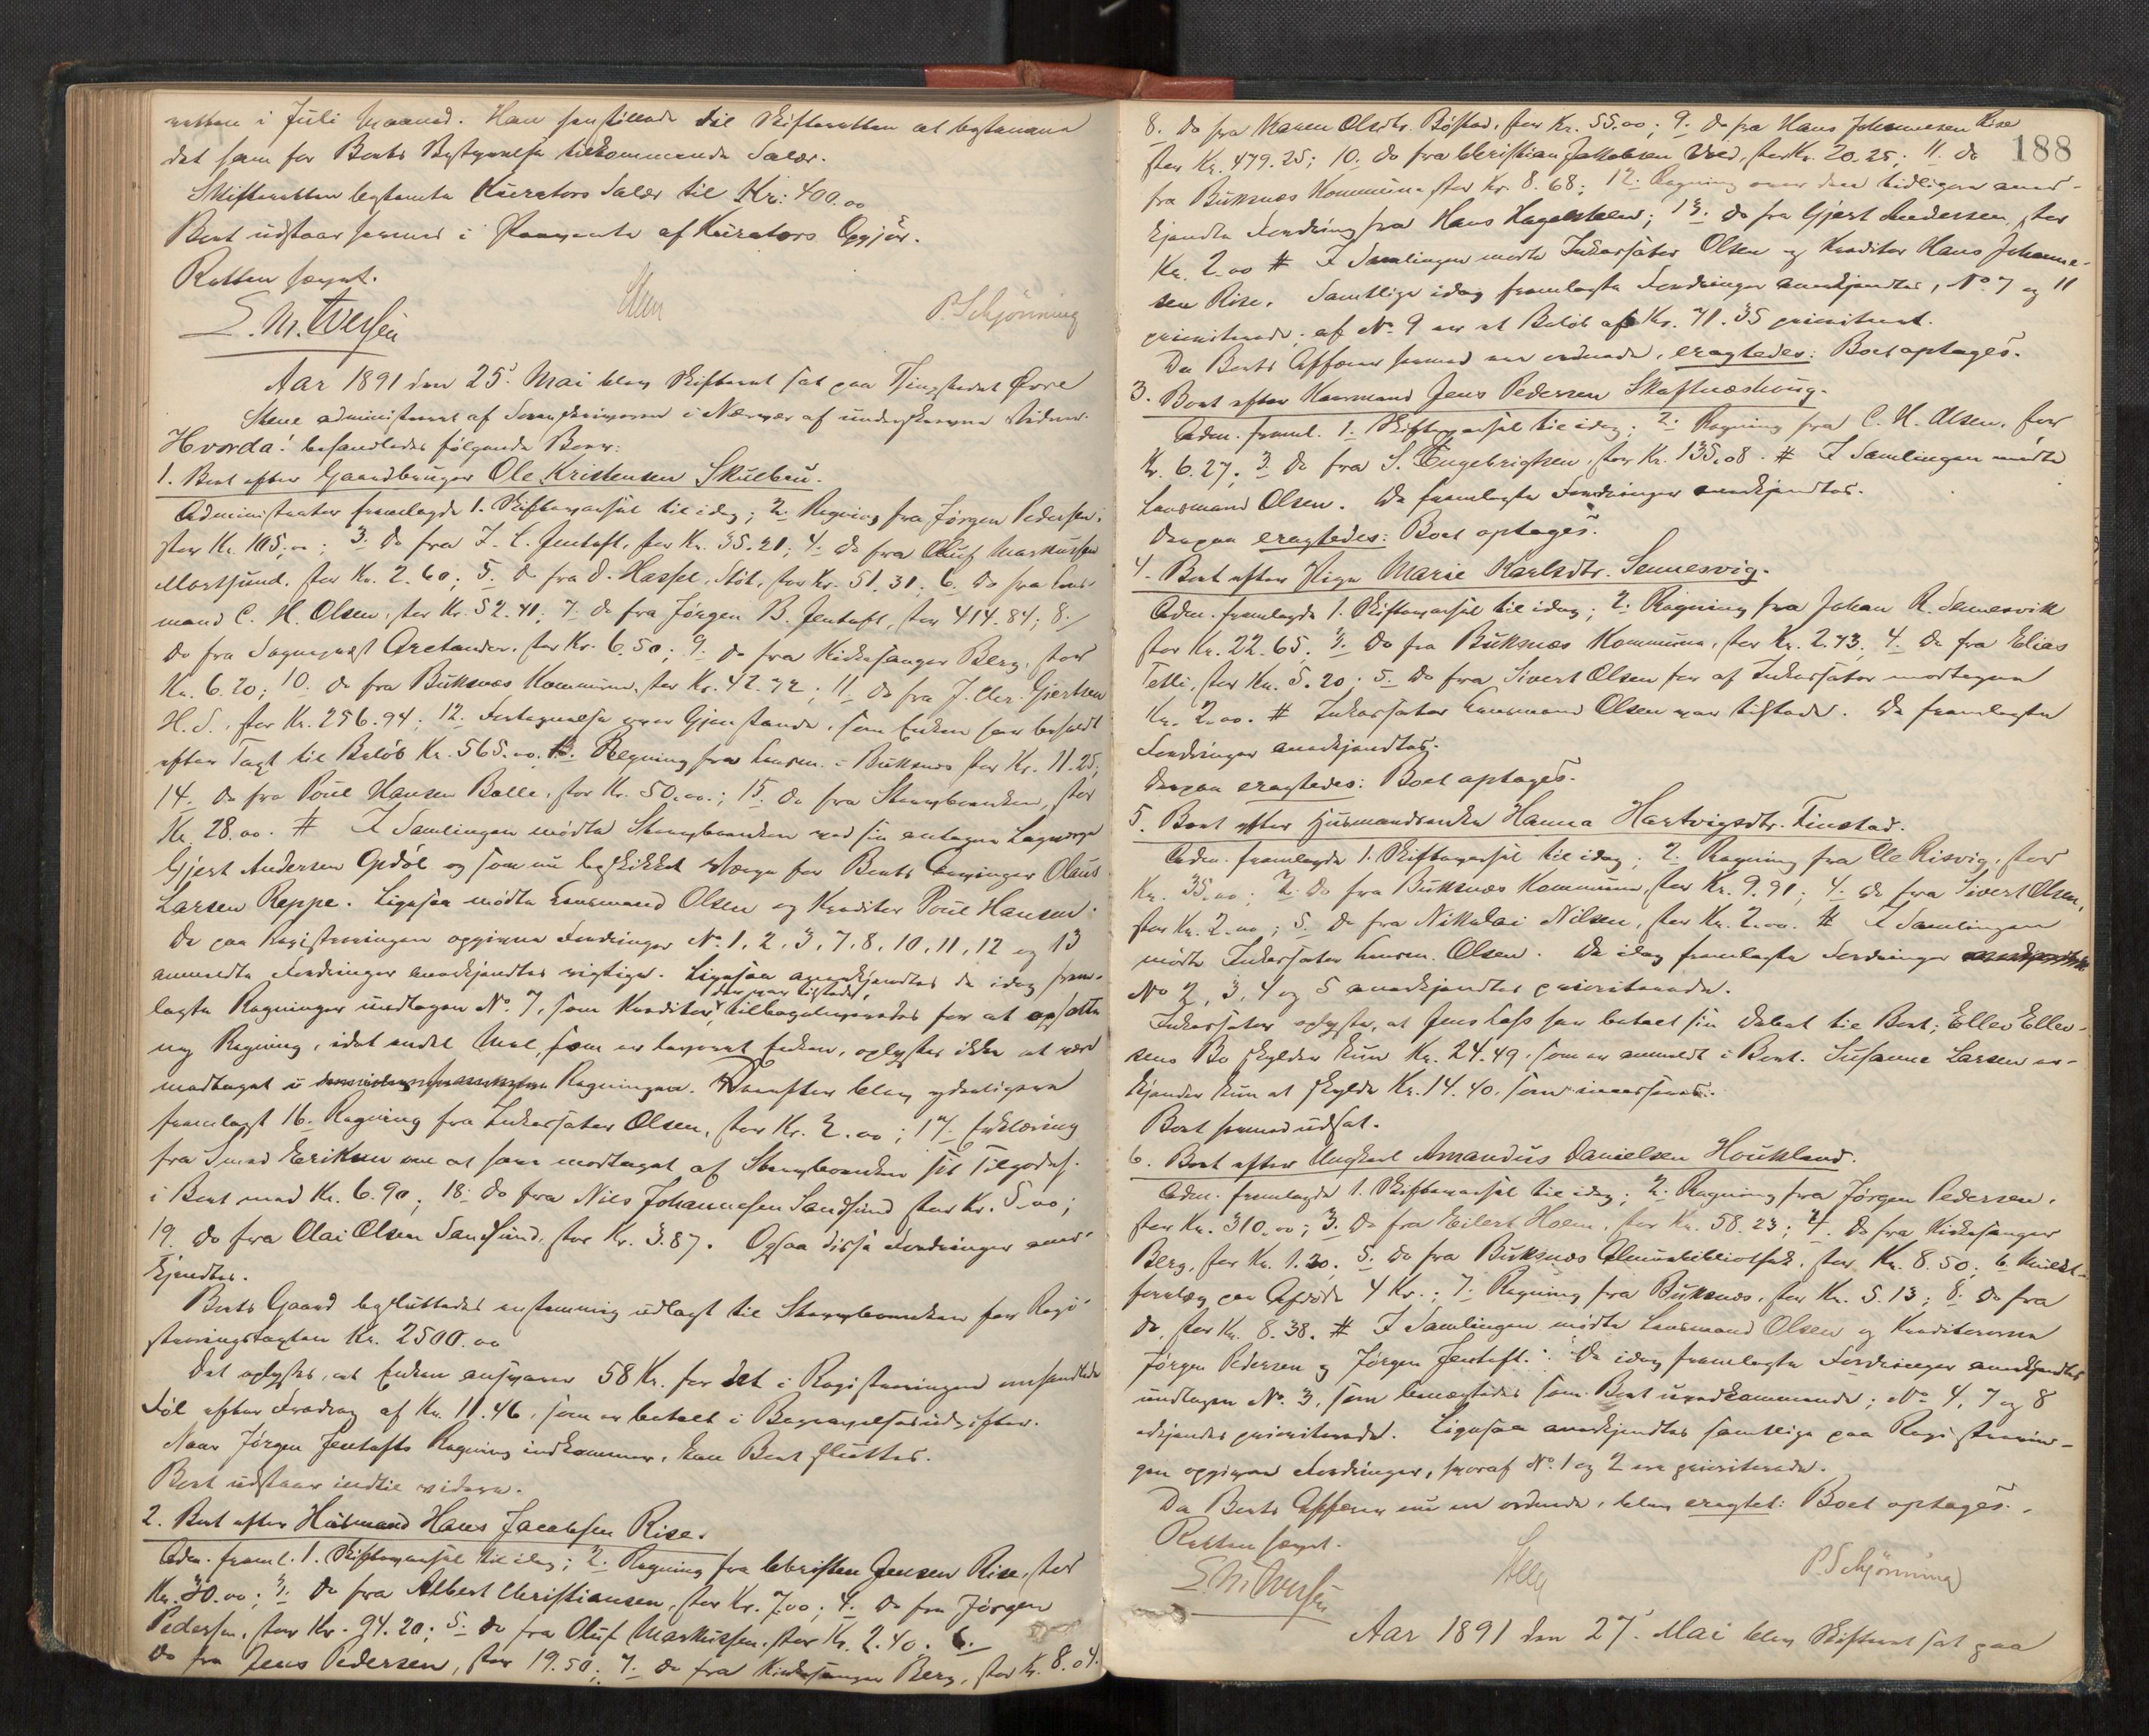 retten i Juli Maaned. Han henstillede til Skifteretten at bestemme
det ham for Boets Bestyrelse tilkommende Salær.
Skifteretten bestemte Kurators Salær til Kr. 400.00
Boet udstaar hermed i Paavente af Kurators Opgjør.
Retten hævet.
E. M. Iversen P. Schjönning
Aar 1891 den 25. Mai blev Skifteret sat paa Thingstedet Øvre
Stene administreret af Sorenskriveren i Nærvær af underskrevne Vidner.
Hvorda! behandledes følgende Boer:
1. Boet efter Gaardbruger Ole Kristensen Skulbru.
Administrator fremlagde 1. Skiftevarsel til idag; 2. Regning fra Jørgen Pedersen,
stor Kr. 105.00; 3. Do fra I. C. Jentoft, stor Kr. 35.21; 4. Do fra Oluf Markussen
Mortsund, stor Kr. 2.60; 5. Do fra O. Hassel, Stöt, stor Kr. 51.31; 6. Do fra Lens-
mand C. H. Olsen, stor Kr. 52.41; 7. Do fra Jörgen B. Jentoft, stor 414.84; 8.
Do fra Sogneprest Arctander, stor Kr. 6.50; 9. Do fra Kirkesanger Berg, stor
Kr. 6.20; 10. Do fra Buksnæs Kommune, stor Kr. 42.72; 11. Do fra J. Chr. Gjertsen
H. S., stor Kr. 256.94; 12. Fortegnelse over Gjenstande, som Enken har beholdt
efter Taxt til Beløb Kr. 565.00. 13. Regning fra Lensm. i Buksnæs stor Kr. 11.25;
14. Do fra Poul Hansen Balle, stor Kr. 50.00; 15. Do fra Stervboenken, stor
Kr. 28.00. # I Samlingen mødte Stervboenken med sin antagne Lagværge
Gjert Andersen Opdöl og som nu beskikket Værge for Boets Arvinger Olaus
Larsen Reppe. Ligesaa mødte Lensmand Olsen og Kreditor Poul Hansen.
De paa Registreringen opgivne Fordringer No. 1, 2, 3, 7, 8, 10, 11, 12 og 13
anmeldte Fordringer anerkjendtes rigtige. Ligesaa anerkjendtes de idag frem-
lagte Regninger undtagen No. 7, som Kreditor, der var tilstede, tilbageleveredes for at opsætte
ny Regning, idet endel Mel, som er leveret Enken, oplystes ikke at være
medtaget i Regningen. Derefter blev yderligere
fremlagt 16. Regning fra Inkassator Olsen, stor Kr. 2.00; 17. Erklæring
fra Smed Eriksen om at have modtaget af Stervboenken sit Tilgodeh.
i Boet med Kr. 6.90; 18. Do fra Nils Johannesen Sandsund stor Kr. 5.00;
19. Do fra Olai Olsen Sandsund, stor Kr. 3.87. Ogsaa disse Fordringer aner-
kjendtes.
Boets Gaard besluttedes enstemmig udlagt til Stervboenken for Regi-
streringstaxten Kr. 2500.00
Det oplystes, at Enken ansvarer 58 Kr. for det i Registreringen omhandlede
Föl efter Fradrag af Kr. 11.46, som er betalt i Begravelsesudgifter.
Naar Jørgen Jentofts Regning indkommer, kan Boet sluttes.
Boet udstaar indtil videre.
2. Boet efter Husmand Hans Jacobsen Rise.
Adm. freml. 1. Skiftevarsel til idag; 2. Regning fra Christen Jensen Rise, stor
Kr. 30.00; 3. Do fra Albert Christiansen, stor Kr. 7.00; 4. Do fra Jörgen
Pedersen, stor Kr. 94.20; 5. Do fra Oluf Markussen, stor Kr. 2.40. 6.
Do fra Jens Pedersen, stor 19.50; 7. Do fra Kirkesanger Berg, stor Kr. 8.04.
188
8. Do fra Karen Olsdtr. Böstad, stor Kr. 55.00; 9. Do fra Hans Johannesen Rise
stor Kr. 479.25; 10. Do fra Christian Jakobsen Vred, stor Kr. 20.25; 11. Do
fra Buksnæs Kommune stor Kr. 8.68; 12. Regning over den tidligere aner-
kjendte Fordring fra Hans Hagerstelen; 13. Do fra Gjert Andersen, stor
Kr. 2.00 # I Samlingen mødte Inkassator Olsen og Kreditor Hans Johanne-
sen Rise. Samtlige idag fremlagte Fordringer anerkjendtes, No. 7 og 11
prioriterede; af No. 9 er et Beløb af Kr. 71.35 prioriteret.
Da Boets Affærer hermed var ordnede, eragtedes: Boet optages.
3. Boet efter Kaarmand Jens Pedersen Skaftnæshaug.
Adm. freml. 1. Skiftevarsel til idag; 2. Regning fra C. H. Olsen, stor
Kr. 6.27; 3. Do fra S. Engebrigtsen, stor Kr. 135.08. # I Samlingen mødte
Lensmand Olsen. De fremlagte Fordringer anerkjendtes.
Derpaa eragtedes: Boet optages.
4. Boet efter Pige Marie Karlsdtr. Sennesvig.
Adm. fremlagde 1. Skiftevarsel til idag; 2. Regning fra Johan R. Sennesvik
stor Kr. 22.65; 3. Do fra Buksnæs Kommune, stor Kr. 2.73; 4. Do fra Elias
Tetli, stor Kr. 5.20; 5. Do fra Sivert Olsen for af Inkassator modtagne
Kr. 2.00. # Inkassator Lensmand Olsen var tilstede. De fremlagte
Fordringer anerkjendtes.
Derpaa eragtedes: Boet optages.
5. Boet efter Husmandsenke Hanna Hartvigsdtr. Finstad.
Adm. fremlagde 1. Skiftevarsel til idag; 2. Regning fra Ole Risvig, stor
Kr. 35.00; 3. Do fra Buksnæs Kommune, stor Kr. 9.91; 4. Do fra Sivert Olsen,
stor Kr. 2.00; 5. Do fra Nikolai Nilsen, stor Kr. 2.00. # I Samlingen
mødte Inkassator Lensm. Olsen. De idag fremlagte Fordringer
No 2, 3, 4 og 5 anerkjendtes prioriterede.
Inkassator oplyste, at Jens Lass har betalt sin Debet til Boet; Ellev Ellev-
sens Bo skylder kun Kr. 24.49, som er anmeldt i Boet. Susanne Larsen er-
kjender kun at skylde Kr. 14.40, som incasseres.
Boet hermed udsat.
6. Boet efter Ungkarl Amandus Danielsen Houkland.
Adm. fremlagde 1. Skiftevarsel til idag; 2. Regning fra Jørgen Pedersen,
stor Kr. 310.00; 3. Do fra Eilert Holm, stor Kr. 58.23; 4. Do fra Kirkesanger
Berg, stor Kr. 1.20; 5. Do fra Buksnæs Almuebibliothek, stor Kr. 8.50; 6. Mulkt-
forelæg paa Afdöde 4 Kr.; 7. Regning fra Buksnæs, stor Kr. 5.13; 8. Do fra
Do, stor Kr. 8.38. # I Samlingen mødte Lensmand Olsen og Kreditorerne
Jörgen Pedersen og Jörgen Jentoft. De idag fremlagte Fordringer anerkjendtes
undtagen No. 3, som benegtedes som Boet uvedkommende; No. 4, 7 og 8
erkjendes prioriterede. Ligesaa anerkjendtes samtlige paa Registrerin-
gen opgivne Fordringer, hvoraf No. 1 og 2 ere prioriterede.
Da Boets Affærer nu er ordnede, blev eragtet: Boet optages.
Retten hævet.
E. M. Iversen P. Schjönning
Aar 1891 den 27. Mai blev Skifteret sat paa